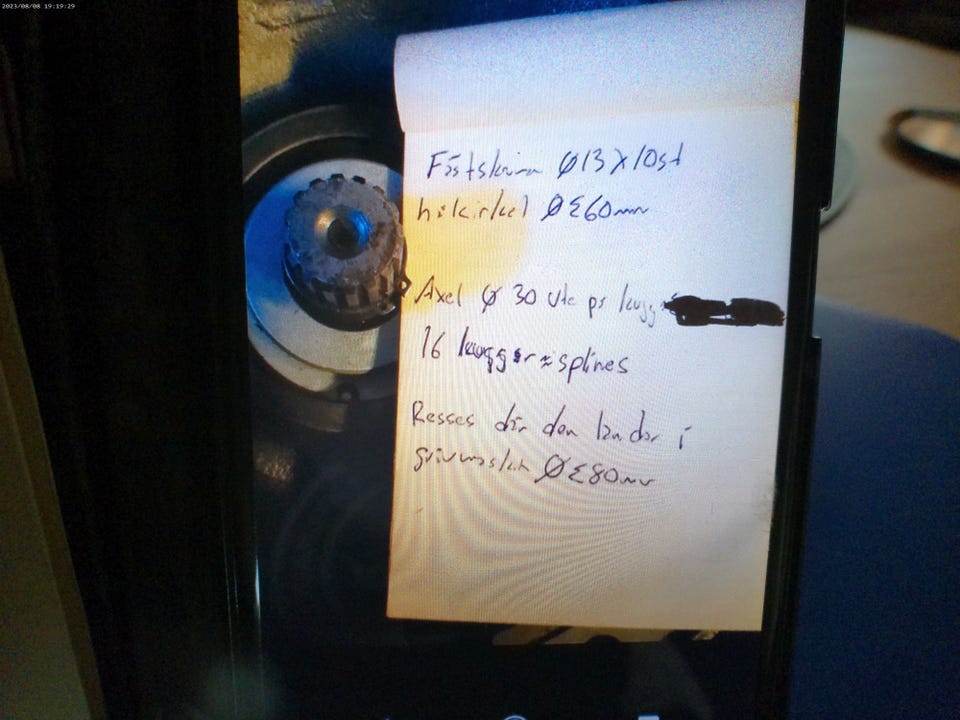 2023/08/08 19:19:29
Ø13 X 10st
hålcirkel Ø ≤60mm
Axel Ø 30 ute på kugg
16 kuggar ≈ splines
Resses där den landar i
Ø ≤80mm